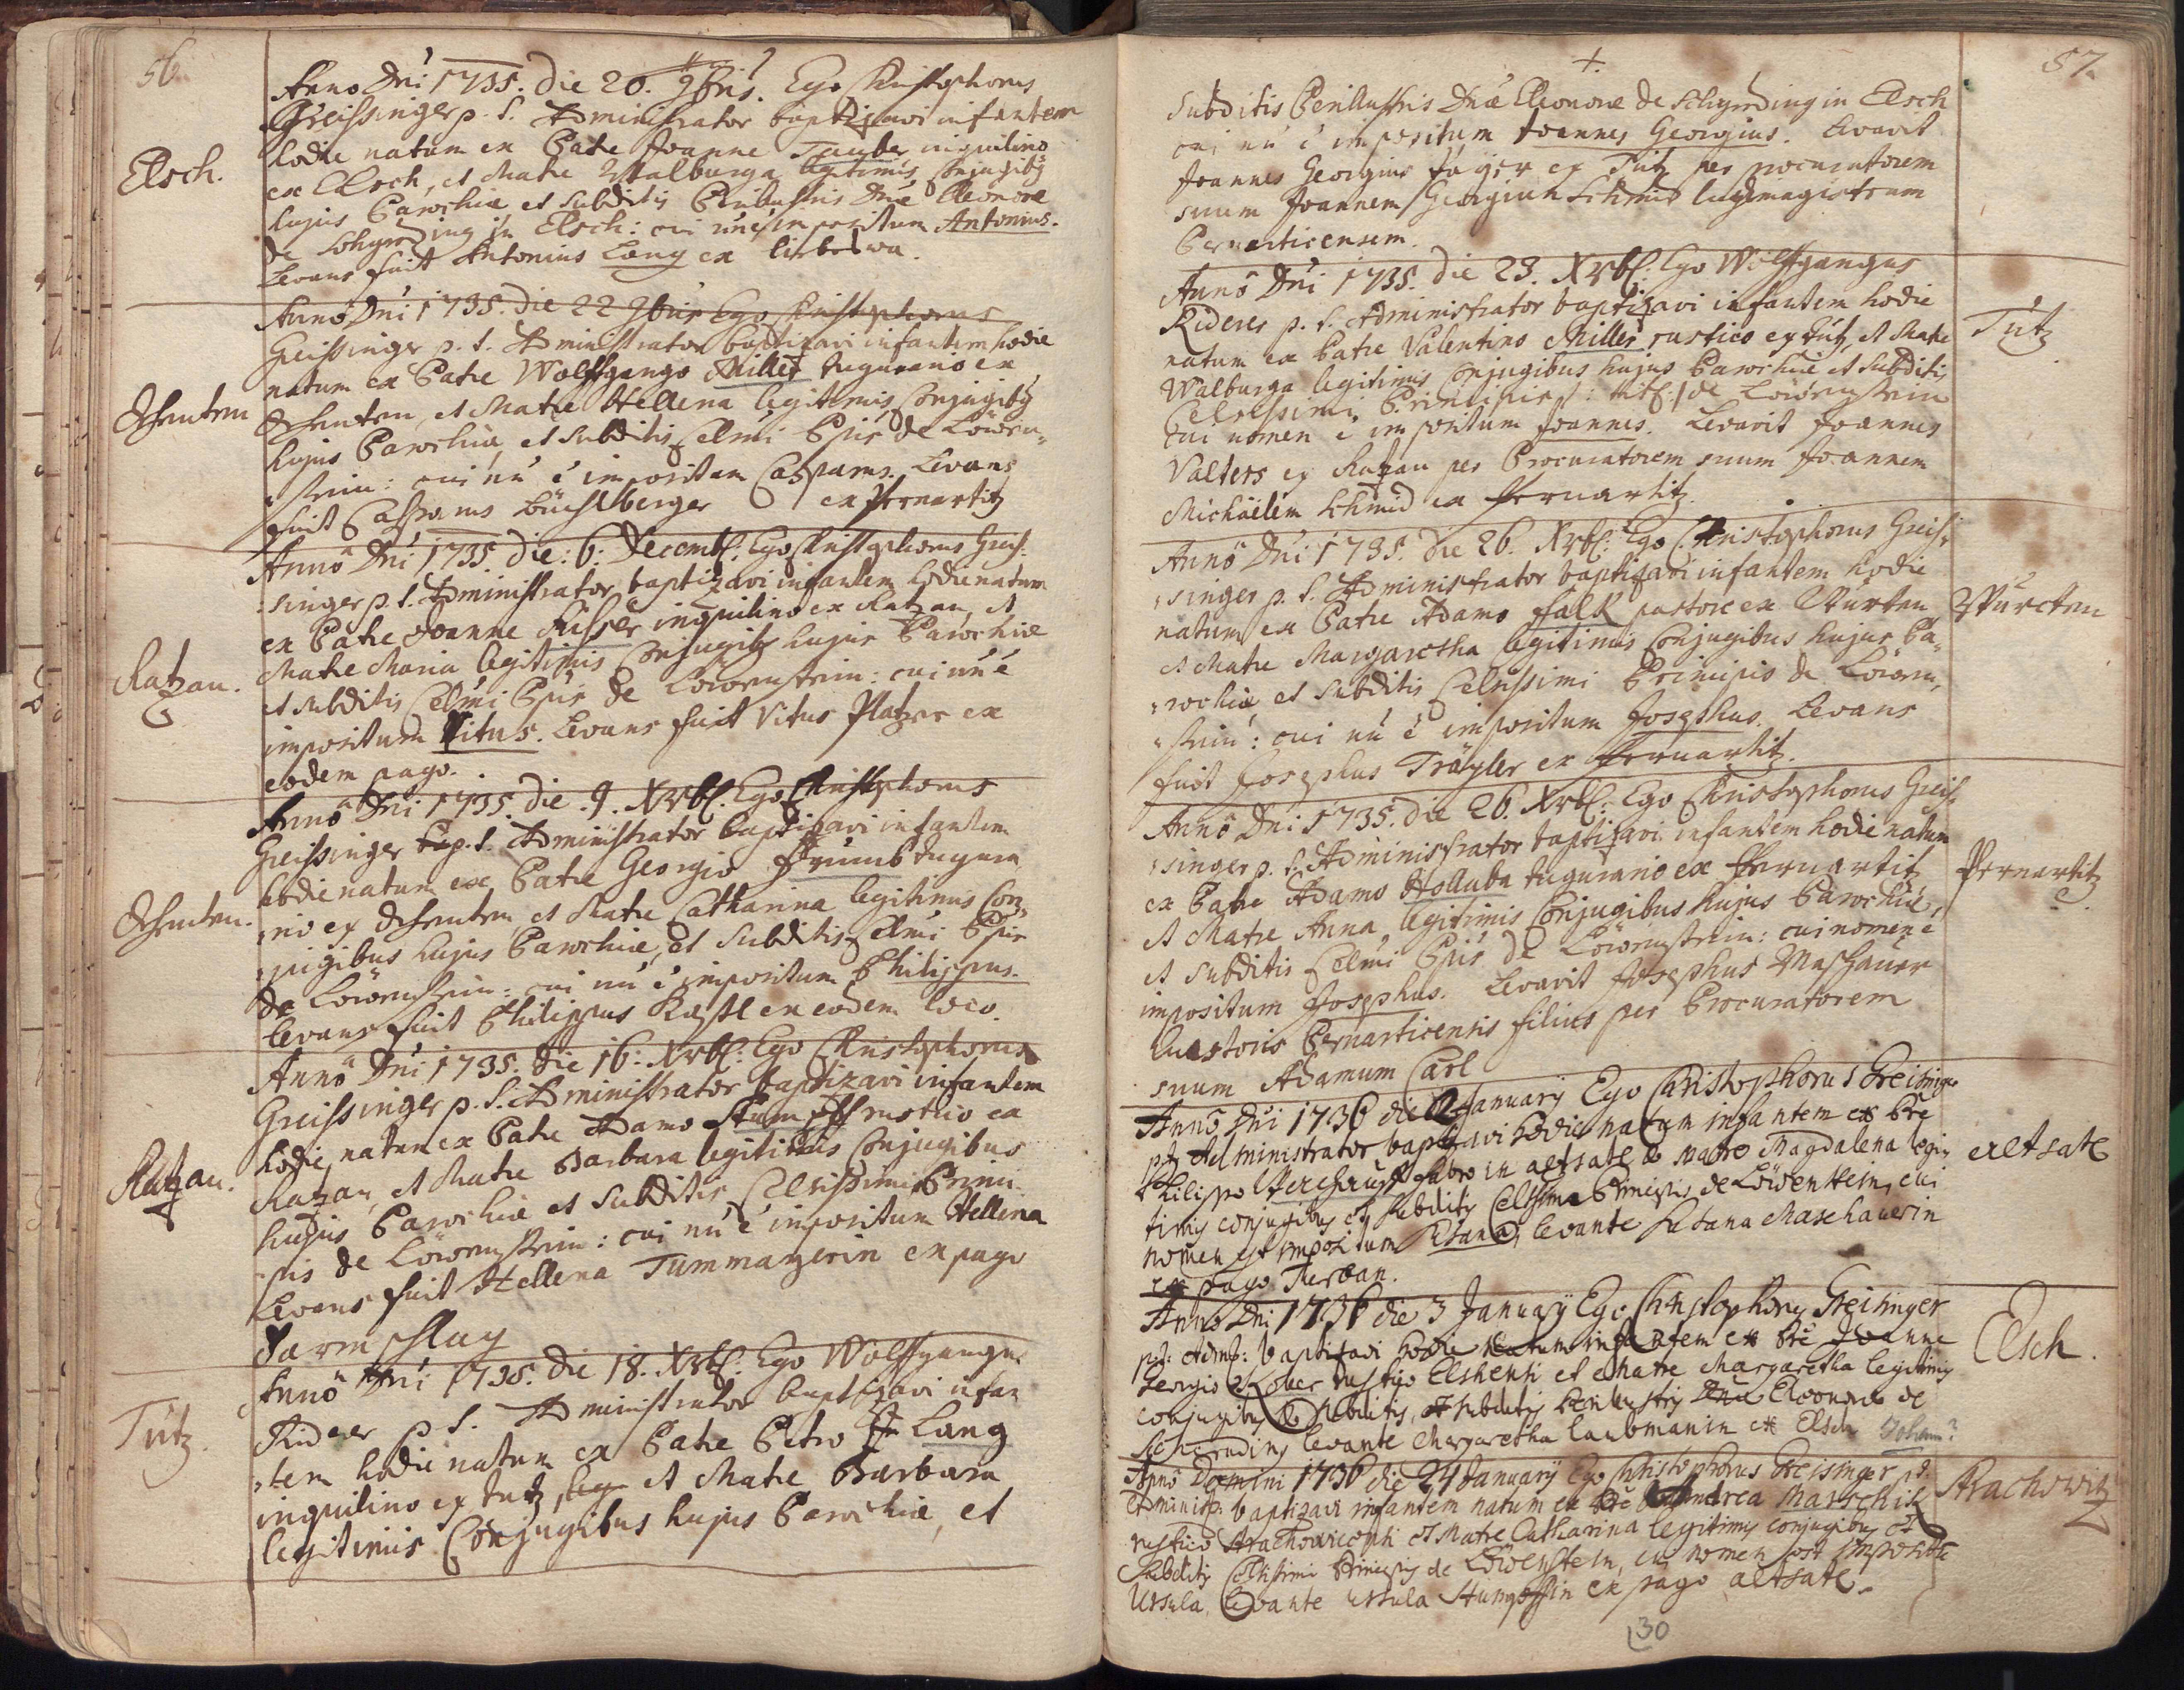 56
Anno Dni 1735. die 20. 9bris. Ego Christophorus
Greissinger p. t. Administrator baptizavi infantem
Elsch.
hodie natum ex Patre Joanne Tauber inquilino
ex Elsch, et Matre Walburga legitimis Conjugibg
hujus Parochiae et subditis Perillustris Dnae Eleonorae
de Schyrnding in Elsch: cui nne impositum Antonius.
Levans fuit Antonius Lang ex
Anno Dni 1735. die 22 9bris Ego Christophorus
Greissinger p. t. Administrator baptizavi infantem hodie
natum ex Patre Wolffgango Miller tugurario ex
Oschenten
Oschenten, et Matre Hellena legitimis Conjugibg
hujus Parochiae, et subditis Celmi Ppis de Löwen„
„stein: cui nn e impositum Casparus. Levans
fuit Casparus Büchlberger ex Pernartitz
Anno Dni 1735. die: 6. Decemb: Ego Christophorus Greis„
„singer p. t. Administrator baptizavi infantem hodie natum
ex Patre Joanne Fischer inquilino ex Ratzau, et
Ratzau.
Matre Maria legitimis Conjugibg hujus Parochiae
et subditis Celmi Ppis de Löwenstein: cui nn e
impositum Vitus. Levans fuit Vitus Platzer ex
eodem pago.
Anno Dni 1735. die 9. Xrbl. Ego Christophorus
Greissinger p. t. Administrator baptizavi infantem
hodie natum ex Patre Georgio Frumb tugura
Oschenten.
„rio ex Oschenten, et Matre Catharina legitimis Con„
„jugibus hujus Parochiae, et subditis Celmi Ppis
de Löwenstein: cui nn e impositum Philippus.
Levans fuit Philippus Kastl ex eodem loco.
Anno Dni 1735. die 16: Xrbl: Ego Christophorus
Greissinger p. t. Administrator baptizavi infantem
hodie natum ex Patre Adamo Stumpff rustico ex
Ratzau.
Ratzau, et Matre Barbara legitimis Conjugibus
hujus Parochiae et subditis Celsissimi Princi„
„pis de Löwenstein: cui nn e impositum Hellena
Levans fuit Hellena Tummayerin ex pago
Darmschlag
Anno Dni 1735. die 18. Xrbl: Ego Wolffgangus
Riderer p t. Administrator baptizavi infan
Tütz.
„tem hodie natum ex Patre Petro Lang
inquilino ex Tutz, et Matre Barbara
legitimis Conjugibus hujus Parochiae, et
57.
subditis Perillustris Dnae Eleonorae de Schyrnding in Elsch
cui nn e impositum Joannes Georgius. Levavit
Joannes Georgius Jäger ex Tütz per procuratorem
suum Joannem Georgium Schmid ludimagistrum
Pernarticensem.
Anno Dni 1735. die 23. Xrbl: Ego Wolffgangus
Riderer p. t. Administrator baptizavi infantem hodie
Tütz
natum ex Patre Valentino Miller rustico ex Tütz, et Matre
Walburga legitimis Conjugibus hujus Parochiae et subditis
Celsissimi Principis /: titl: / de Löwenstein
cui nomen e impositum Joannes. Levavit Joannes
Valters ex Ratzau per Procuratorem suum Joannem
Michäelem Schmid ex Pernartitz
Anno Dni 1735. die 26. Xrbl: Ego Christophorus Greis„
„singer p. t. Administrator baptizavi infantem hodie
natum ex Patre Adamo Falk pastore ex Wurcten
Wurcten
et Matre Margaretha legitimis Conjugibus hujus Pa„
„rochiae et subditis Celsissimi Principis de Löwen„
„stein: cui nn e impositum Josephus. Levans
fuit Josephus Träyler ex Pernartitz.
Anno Dni 1735. die 26. Xrbl: Ego Christophorus Greis„
„singer p. t. Administrator baptizavi infantem hodie natum
ex Patre Adamo Holluba tugurario ex Pernartitz
Pernartitz
et Matre Anna, legitimis Conjugibus hujus Parochiae,
et subditis Celmi Ppis de Löwenstein: cui nomen e
impositum Josephus. Levavit Josephus Maschauer
Quaestoris Pernarticensis filius per Procuratorem
suum Adamum Carl
Anno Dni 1736 die 2 January Ego Christophorus Greisinger
pt Administrator baptizavi hodie natum infantem ex Pre
Philippo fabro in altsatl et Matre Magdalena legi„
altsatl
timis conjugibus et subditis Celsissimi Principis de Löwenstein, cui
nomen est impositum Susana, levante Susana Maschauerin
ex pago
Anno Dni 1736 die 3 January Ego Christophorus Greisinger
pt: Admt: baptizavi hodie natum infantem ex Pre Joanne
Elsch.
Georgio rustico Elshensi et Matre Margaretha legitimis
conjugibus et subditis Perillustris Dnae Eleonorae de
Schirnding levante Margaretha Laubmanin ex Elsch Johann?
Anno Domini 1736 die 24 January Ego Christophorus Greisinger pt.
Administr: baptizavi infantem natum ex Pre Andrea Marschik
Strachowitz
rustico Strachowicensi et Matre Catharina legitimis conjugibus et
Subditis Celsissimi Principis de Löwenstein, cui nomen est impositum
Ursula, levante Ursula ex pago altsatl.
30